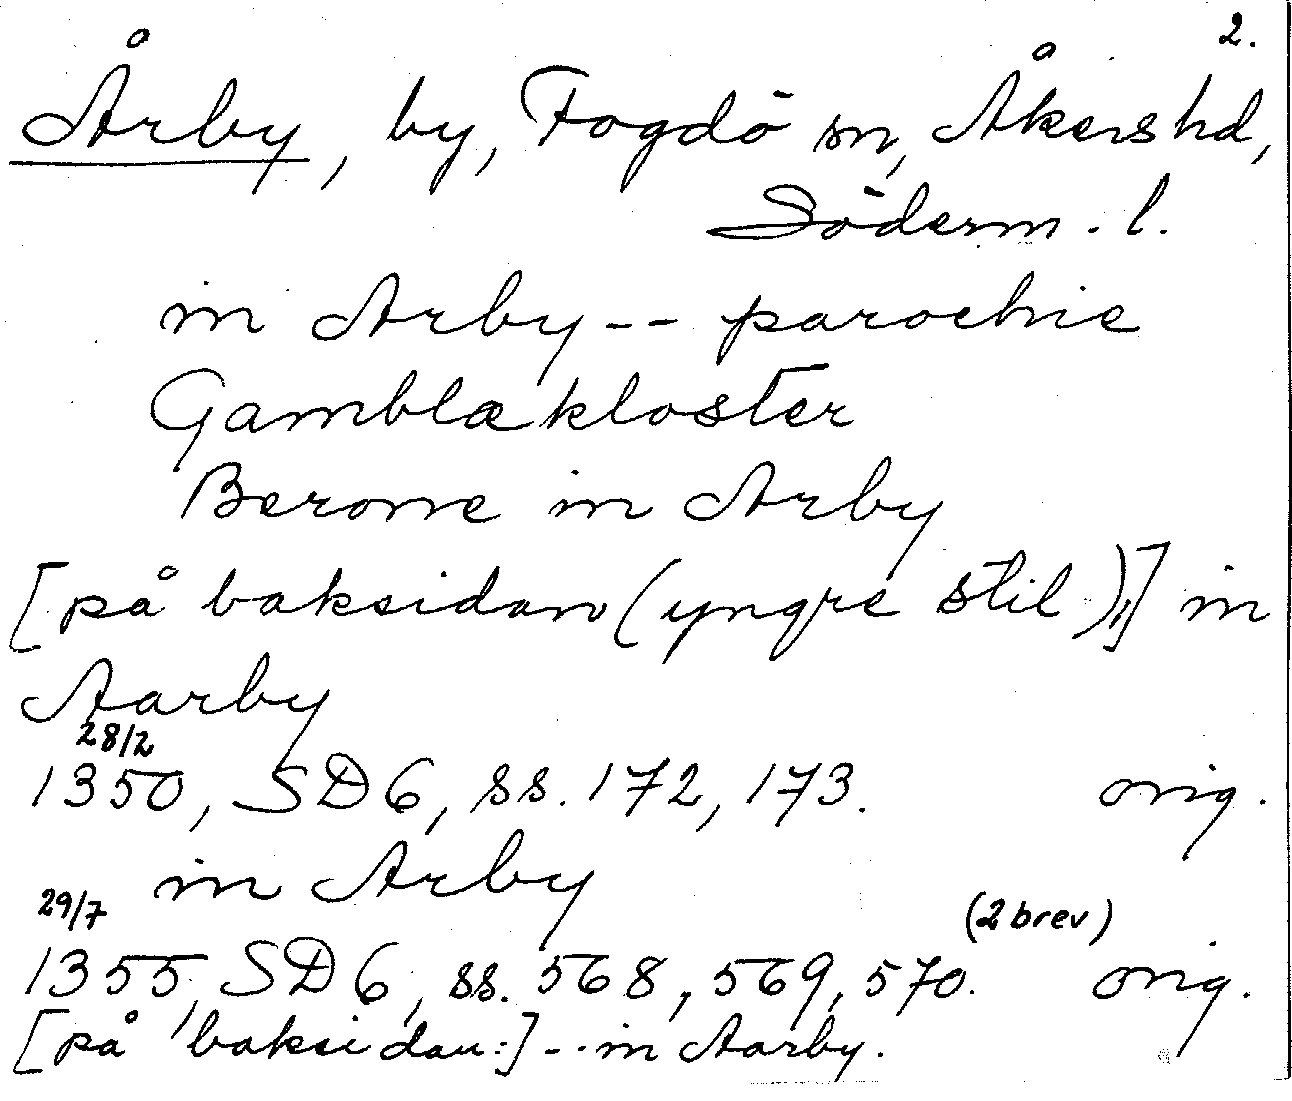 2.
Årby, by, Fogdö sn, Åkers hd,
Söderm. l.
in Arby -- parochie
Gamblækloster
Berone in Arby
[på baksidan (yngre stil),] in
Aarby
28/2
1350, SD 6, ss. 172, 173. orig.
in Arby
29/7 (2 brev)
1355, SD 6, ss. 568, 569, 570. orig.
[på baksidan:] -- in Aarby.